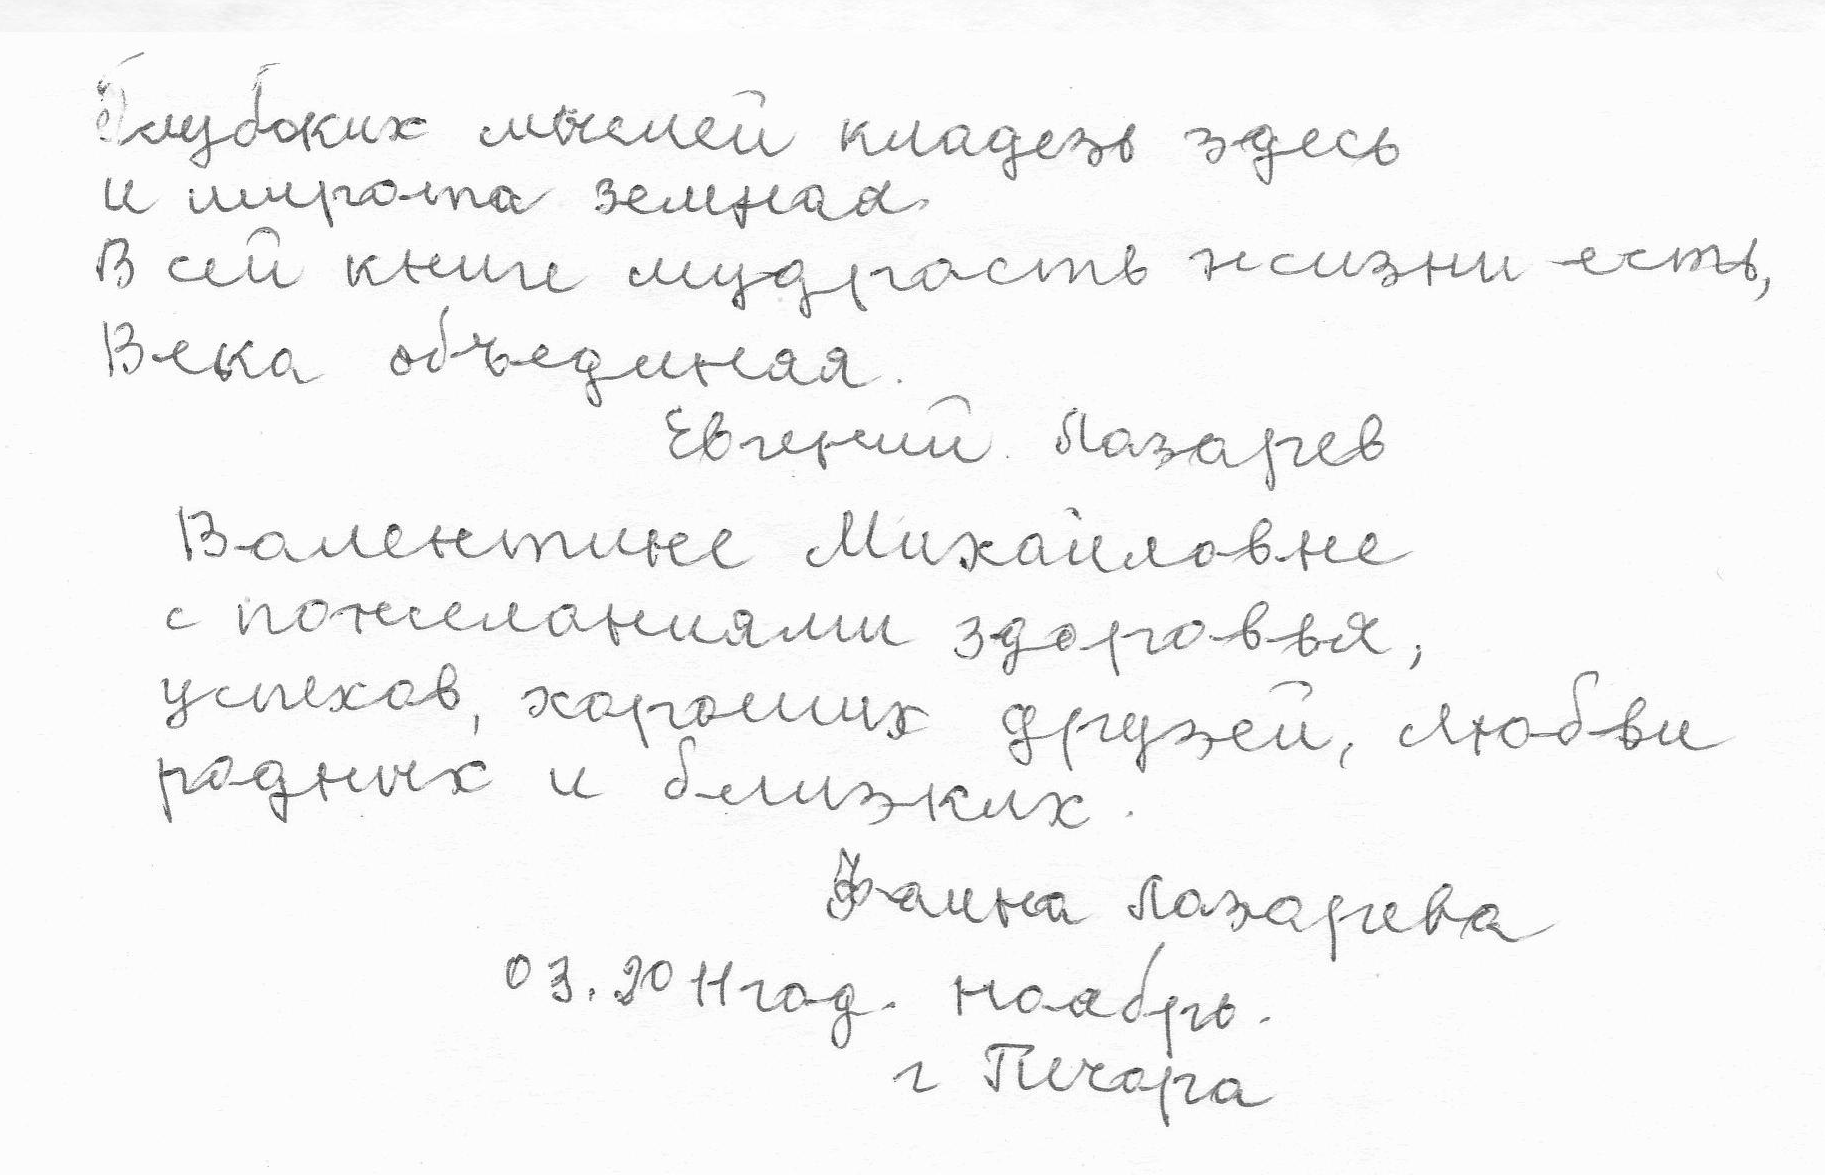 Глубоких мыслей кладезь здесь
и широта земная.
В сей книге мудрость жизни есть,
Века объединяя.
Евгений Лазарев
Валентине Михайловне
с пожеланиями здоровья,
успехов, хороших друзей, любви
родных и близких.
Фаина Лазарева
03.2011год. ноябрь.
г Печора